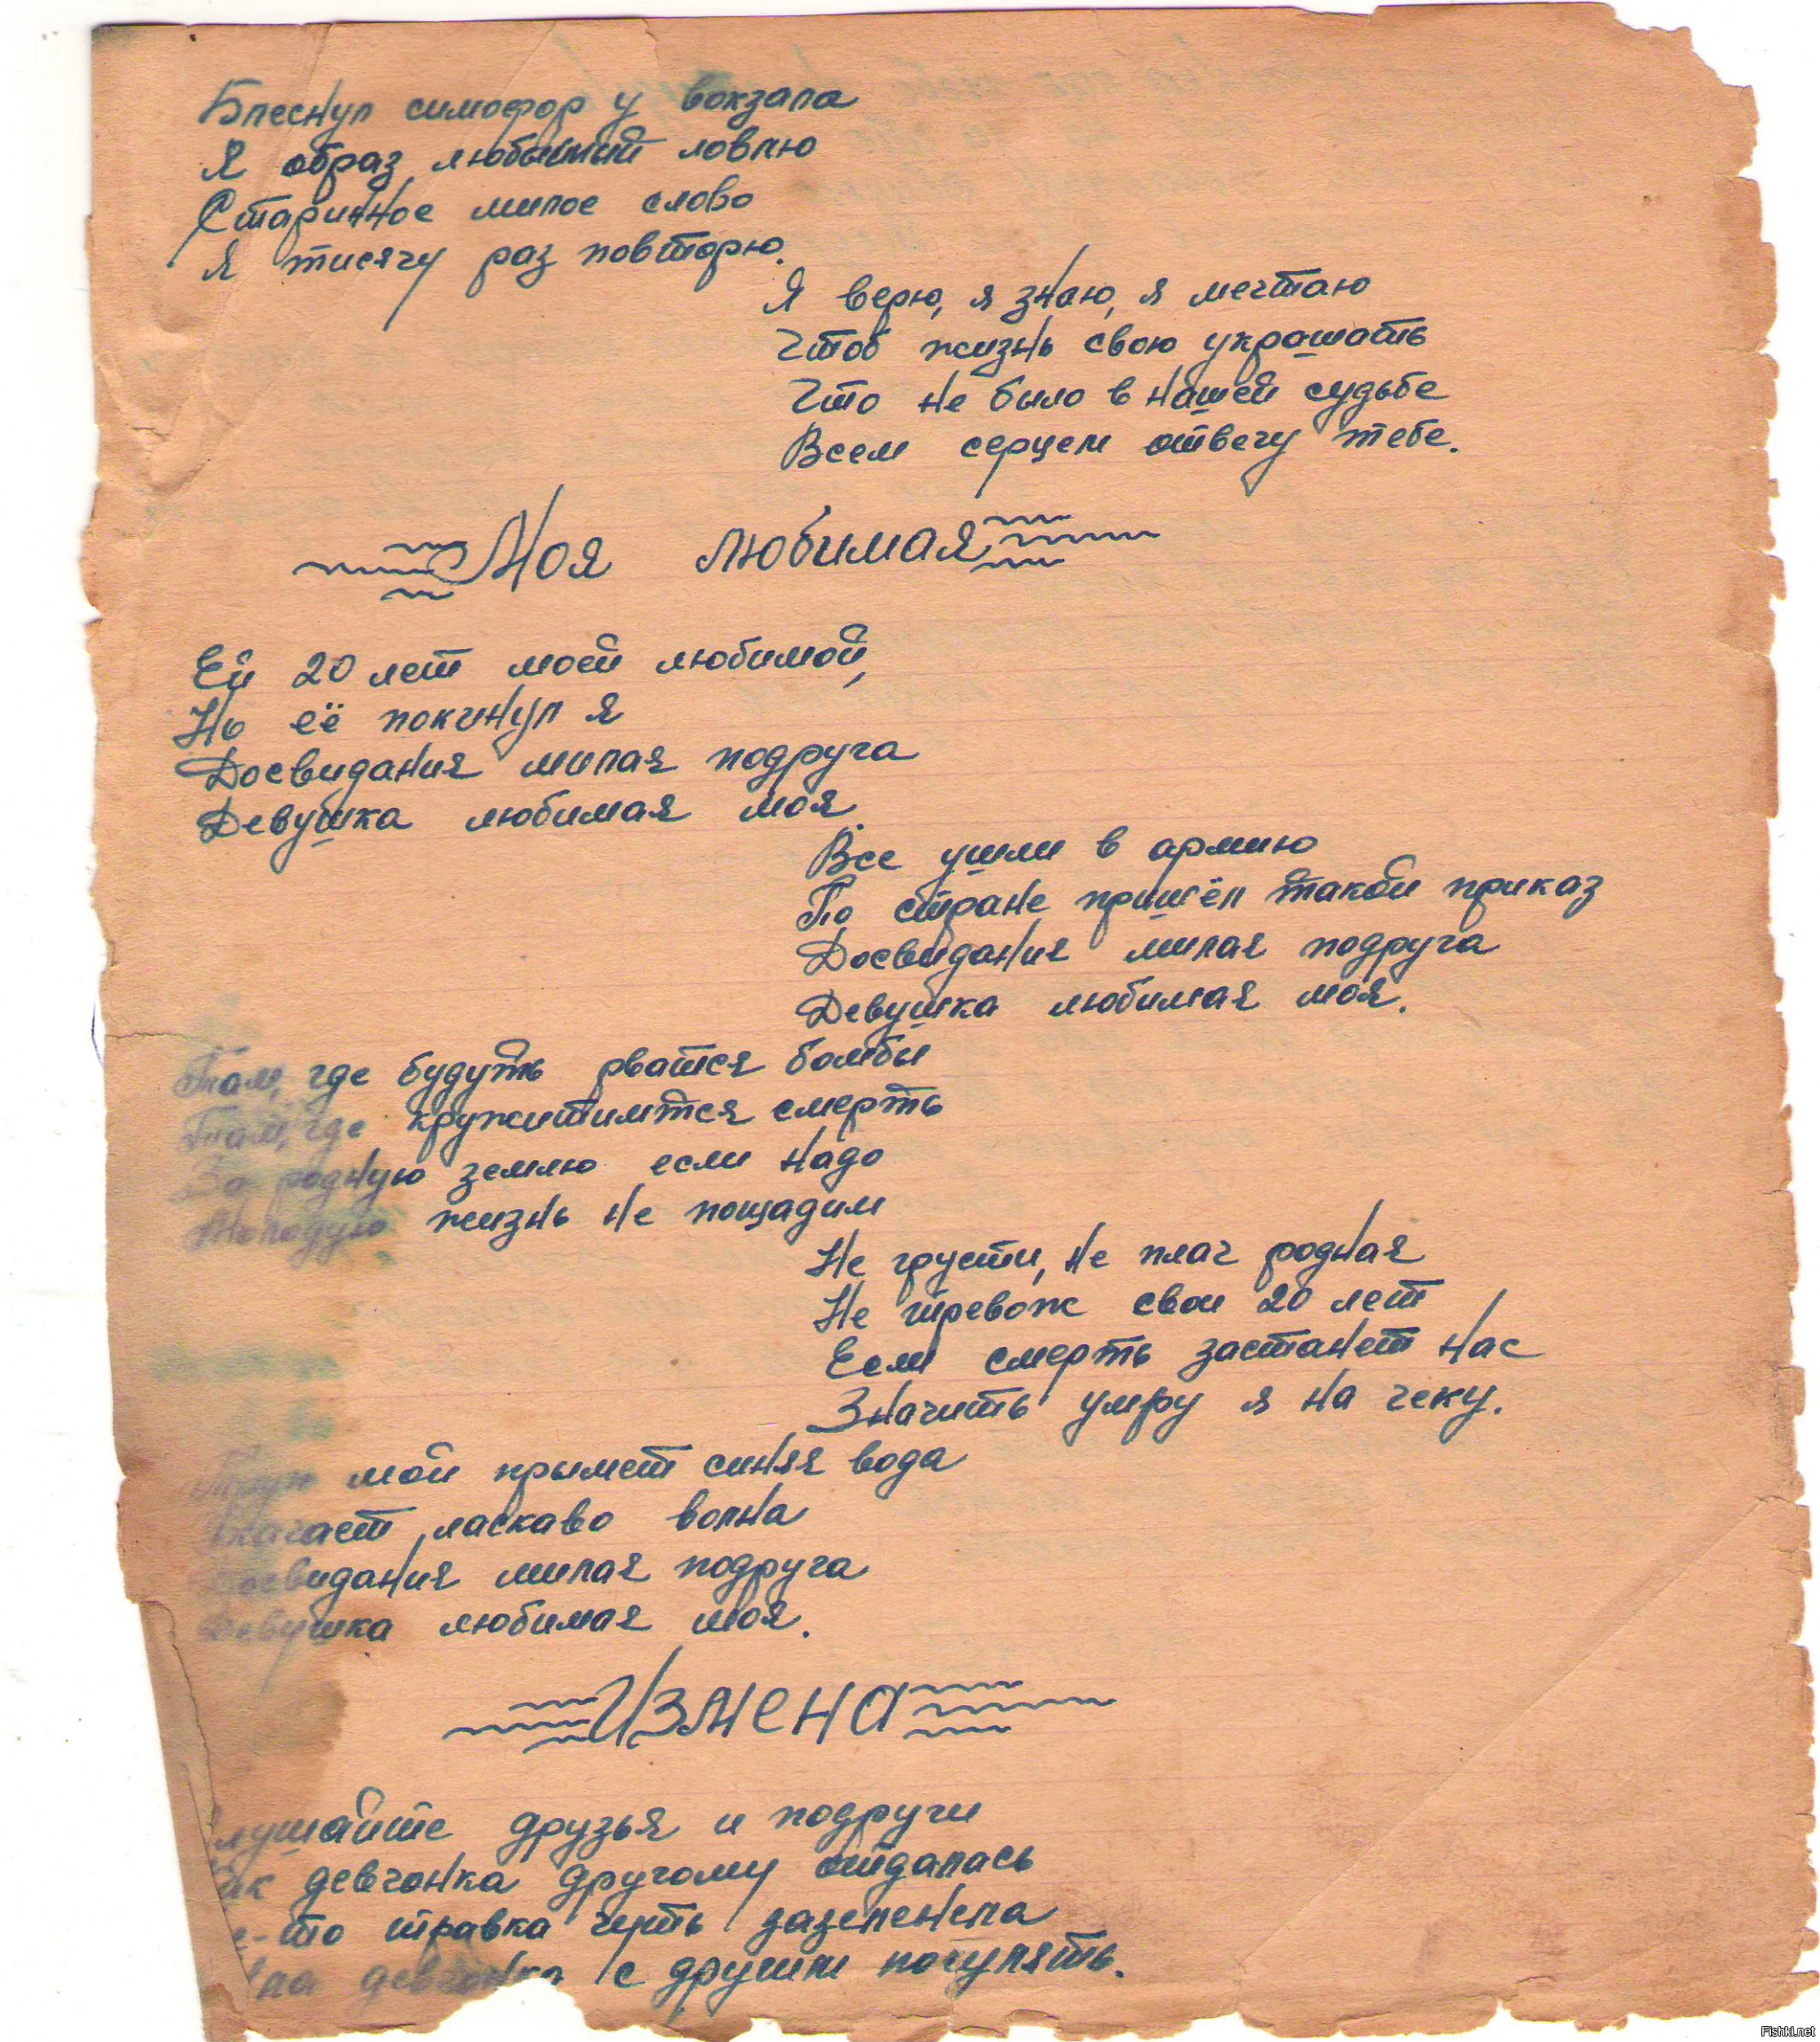 Блеснул симофор у вокзала
Я образ любымый ловлю
Старинное милое слово
Я тисячу раз повторю.
Я верю, я знаю, я мечтаю
Чтоб жизнь свою украшать
Что не било в нашей судьбе
Всем серцем отвечу тебе.
Моя любимая
Ей 20 лет моей любимой,
Но её покинул я
Досвидания милая подруга
Девушка любимая моя.
Все ушли в армию
По стране пришёл такой приказ
Досвидания милая подруга
Девушка любимая моя.
Там, где будуть рватся бомбы
Там, где смерть
За родную землю если надо
Молодую жизнь не пощадим
Не грусти, не плач родная
Не тревож свои 20 лет
Если смерть застанет нас
Значить умру я на чеку.
Труп мой прымет синяя вода
ласкаво волна
Досвидания милая подруга
Девушка любимая моя.
Измена
лушайте друзья и подруги
ак девчонка другому отдалась
е-то травка чуть зазеленела
ла девчонка с другим погулять.
Fishki.net